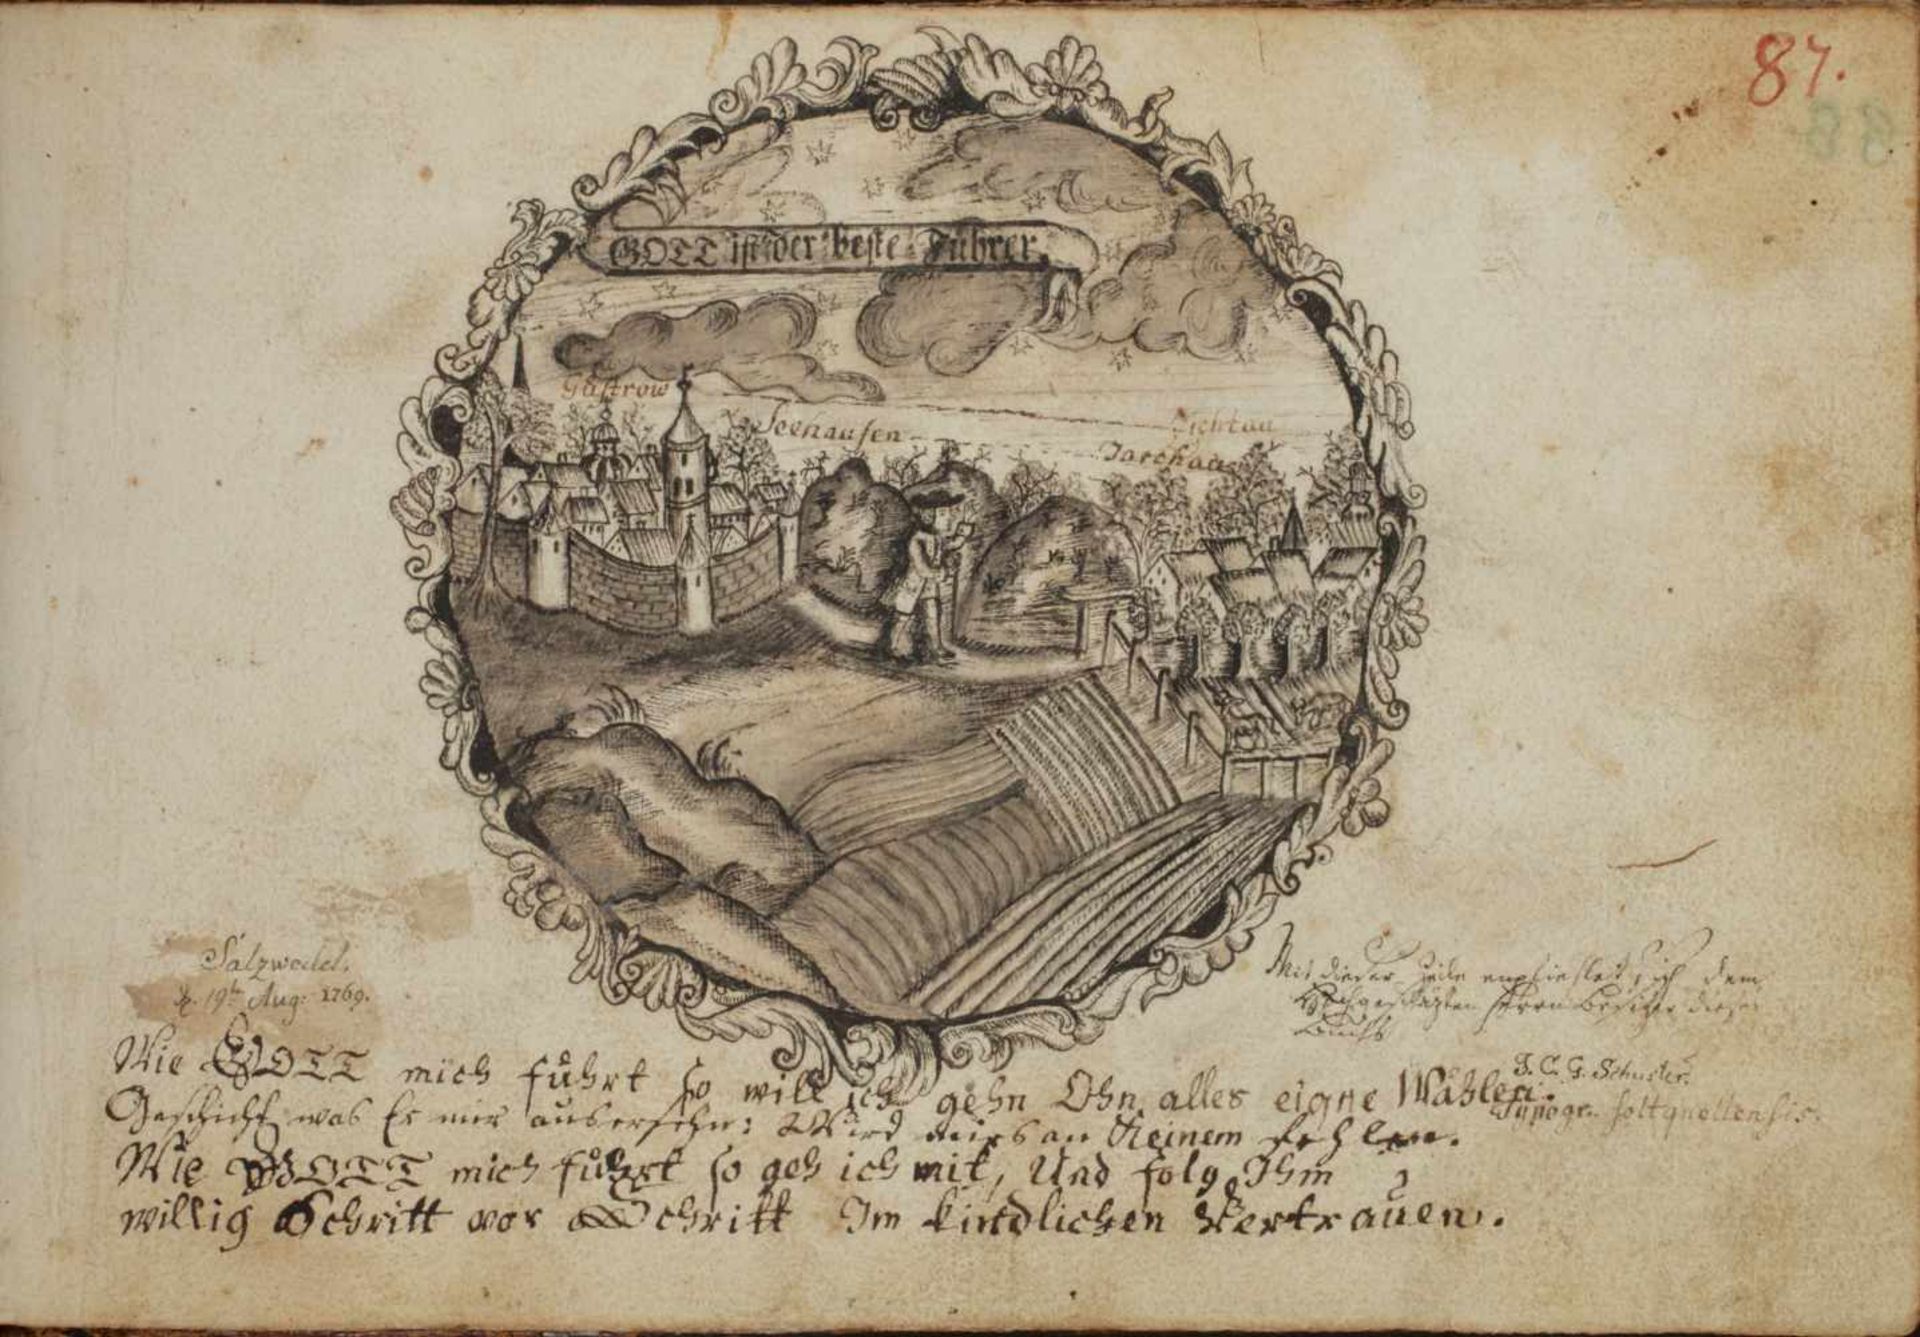 87.
88
GOTT ist der beste Führer.
Güstrow
Seehausen
Zichtau
Jarchau
Saltzwedel.
d. 19t Aug: 1769.
Mit dieser Zeile empfiehlet sich dem
Hochgeschäzten Herrn Besitzer dieses
Buchs
J. C. G. Schuster.
Typogr. soltquellensis.
Wie GOTT mich führt so will ich gehn Ohn alles eigne Wählen.
Geschicht was Er mir ausersehn: Wird mirs an Keinem fehlen.
Wie GOTT mich führt so geh ich mit, Und folg Ihm
willig Schritt vor Schritt Im kindlichen Vertrauen.